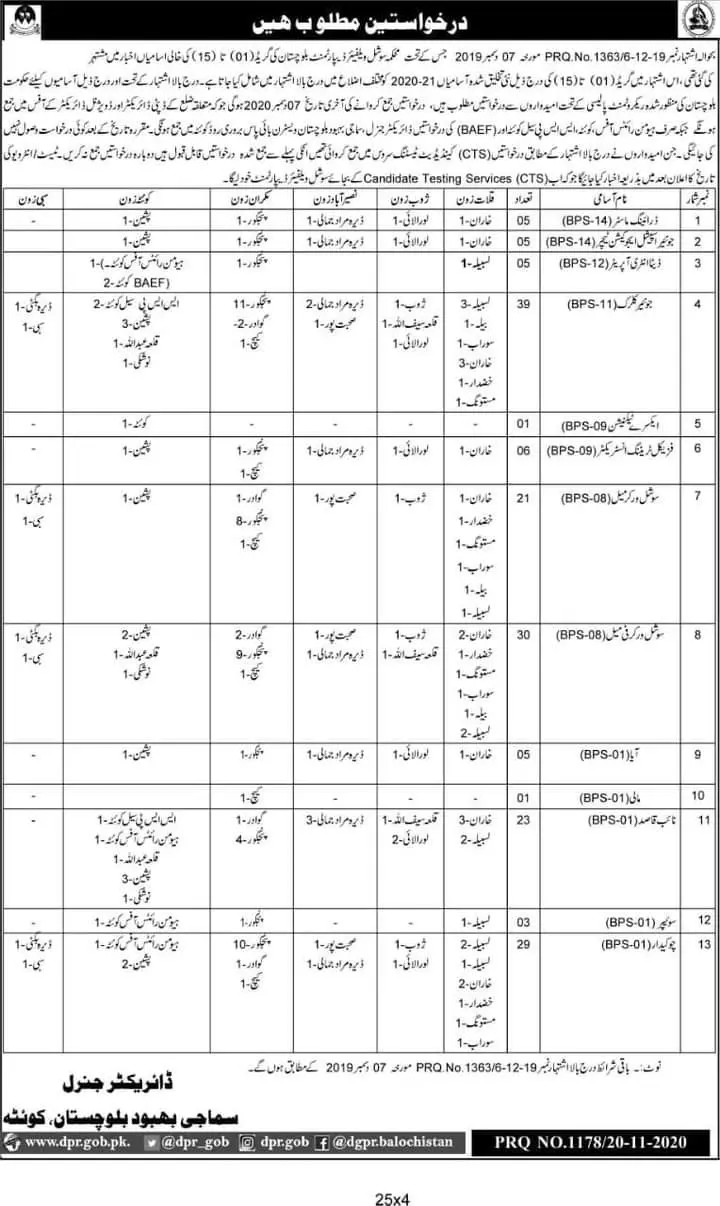 درخواستیں مطلوب ہیں
بحوالہ اشتہار نمبر PRQ.No.1363/6-12-19 مورخہ 07 دسمبر 2019 جس کے تحت محکمہ سوشل ویلفیئر ڈیپارٹمنٹ بلوچستان کی گریڈ (01) تا (15) کی خالی اسامیاں اخبار میں مشتہر
کی گئی تھی، اس اشتہار میں گریڈ (01) تا (15) کی درج ذیل نئی تخلیق شدہ آسامیاں 21-2020 کو مختلف اضلاع میں درج بالا اشتہار میں شامل کیا جاتا ہے۔ درج بالا اشتہار کے تحت اور درج ذیل آسامیوں کیلئے حکومت
بلوچستان کی منظور شدہ ریکروٹمنٹ پالیسی کے تحت امیدواروں سے درخواستیں مطلوب ہیں، درخواستیں جمع کروانے کی آخری تاریخ 07 دسمبر 2020 ہوگی جو کہ متعلقہ ضلع کے ڈپٹی ڈائریکٹر اور ڈویژنل ڈائریکٹر کے آفس میں جمع
ہونگے جبکہ صرف ہیومن رائٹس آفس، کوئٹہ، ایس ایس پی سیل کوئٹہ اور (BAEF) کی درخواستیں ڈائریکٹر جنرل، سماجی بہبود بلوچستان ویسٹرن بائی پاس بروری روڈ کوئٹہ میں جمع ہونگی۔ مقررہ تاریخ کے بعد کوئی درخواست وصول نہیں
کی جائیگی۔ جن امیدواروں نے درج بالا اشتہار کے مطابق درخواستیں (CTS) کینڈیڈیٹ ٹیسٹنگ سروس میں جمع کروائی تھیں انکی پہلے سے جمع شدہ درخواستیں قابل قبول ہیں دوبارہ درخواستیں جمع نہ کریں۔ ٹیسٹ/انٹرویو کی
تاریخ کا اعلان بعد میں بذریعہ اخبار کیا جائیگا جو کہ اب Candidate Testing Services (CTS) کے بجائے سوشل ویلفیئر ڈیپارٹمنٹ خود لیگا۔
نمبر شمار نام آسامی تعداد قلات زون ژوب زون نصیر آباد زون مکران زون کوئٹہ زون سبی زون
1 ڈرائینگ ماسٹر (BPS-14) 05 خاران-1 لورالائی-1 ڈیرہ مراد جمالی-1 پنجگور-1 پشین-1 -
2 جونیئر اسپیشل ایجوکیشن ٹیچر (BPS-14) 05 خاران-1 لورالائی-1 ڈیرہ مراد جمالی-1 پنجگور-1 پشین-1
3 ڈیٹا انٹری آپریٹر (BPS-12) 05 لسبیلہ-1 پنجگور-1 ہیومن رائٹس آفس کوئٹہ-1 (
BAEF کوئٹہ-2)
4 جونیئر کلرک (BPS-11) 39 لسبیلہ-3 ژوب-1 ڈیرہ مراد جمالی-2 پنجگور-11 ایس ایس پی سیل کوئٹہ-2 ڈیرہ بگٹی-1
بیلہ-1 قلعہ سیف اللہ-1 صحبت پور-1 گوادر-2- پشین-3 سبی-1
سوراب-1 لورالائی-1 کیچ-1 قلعہ عبداللہ-1
خاران-3 نوشکی-1
خضدار-1
مستونگ-1
5 ایکسرے ٹیکنیشن (BPS-09) 01 - - - - کوئٹہ-1 -
6 فزیکل ٹریننگ انسٹریکٹر (BPS-09) 06 خاران-1 لورالائی-1 ڈیرہ مراد جمالی-1 پنجگور-1 پشین-1 -
کیچ-1
7 سوشل ورکر میل (BPS-08) 21 خاران-1 ژوب-1 صحبت پور-1 گوادر-1 پشین-1 ڈیرہ بگٹی-1
خضدار-1 پنجگور-8 سبی-1
مستونگ-1 کیچ-1
سوراب-1
بیلہ-1
لسبیلہ-1
8 سوشل ورکر فی میل (BPS-08) 30 خاران-2 ژوب-1 صحبت پور-1 گوادر-2 پشین-2 ڈیرہ بگٹی-1
خضدار-1 قلعہ سیف اللہ-1 ڈیرہ مراد جمالی-1 پنجگور-9 قلعہ عبداللہ-1 سبی-1
مستونگ-1 کیچ-1 نوشکی-1
سوراب-1
بیلہ-1
لسبیلہ-2
9 آیا (BPS-01) 05 خاران-1 لورالائی-1 ڈیرہ مراد جمالی-1 پنجگور-1 پشین-1 -
10 مالی (BPS-01) 01 - - - کیچ-1 -
11 نائب قاصد (BPS-01) 23 خاران-3 قلعہ سیف اللہ-1 ڈیرہ مراد جمالی-3 گوادر-1 ایس ایس پی سیل کوئٹہ-1 -
لسبیلہ-2 لورالائی-2 پنجگور-4 ہیومن رائٹس آفس کوئٹہ-1
قلعہ عبداللہ-1
پشین-3
نوشکی-1
12 سوئیپر (BPS-01) 03 لسبیلہ-1 - - پنجگور-1 ہیومن رائٹس آفس کوئٹہ-1 -
13 چوکیدار (BPS-01) 29 لسبیلہ-2 ژوب-1 صحبت پور-1 پنجگور-10 ہیومن رائٹس آفس کوئٹہ-1 ڈیرہ بگٹی-1
لسبیلہ-1 لورالائی-1 ڈیرہ مراد جمالی-1 گوادر-1 پشین-2 سبی-1
خاران-2 کیچ-1
خضدار-1
مستونگ-1
سوراب-1
نوٹ:۔ باقی شرائط درج بالا اشتہار نمبر PRQ.No.1363/6-12-19 مورخہ 07 دسمبر 2019 کے مطابق ہوں گے۔
ڈائریکٹر جنرل
سماجی بہبود بلوچستان، کوئٹہ
www.dpr.gob.pk. @dpr_gob dpr.gob @dgpr.balochistan PRQ NO.1178/20-11-2020
25x4